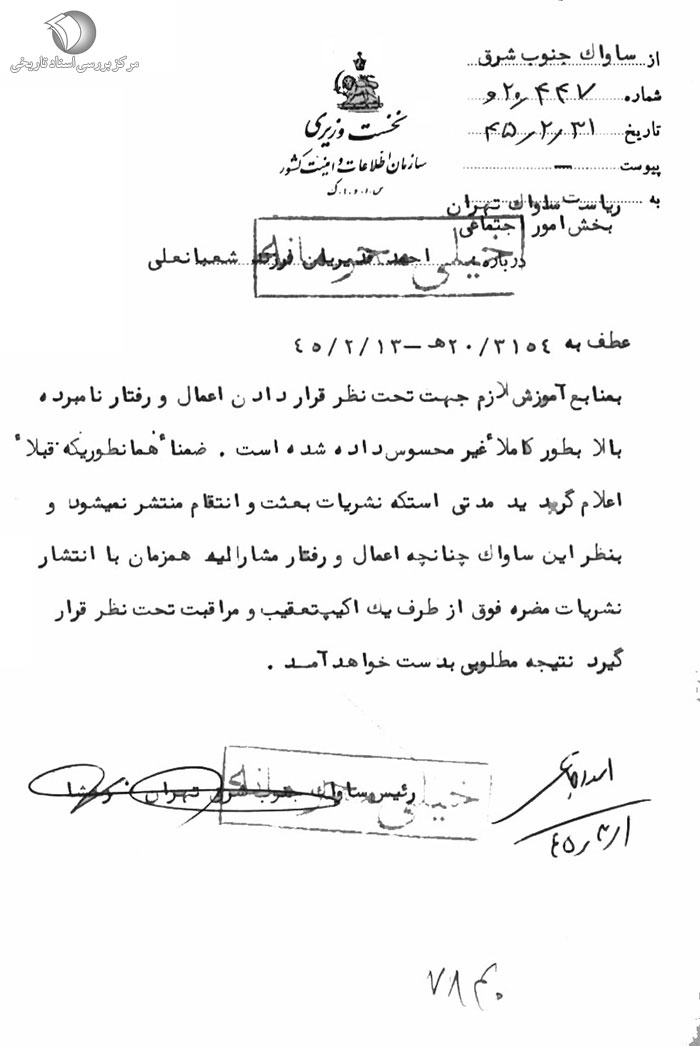 مرکز بررسی اسناد تاریخی
نخست وزیری
سازمان اطلاعات و امنیت کشور
س.ا.و.ا.ک
از ساواك جنوب شرق
شماره ۲۰٫۴۴۷ و
تاریخ ۴۵٫۲٫۳۱
پیوست —
به ریاست ساواك تهران
بخش امور اجتماعی
درباره احمد قدیریان فرزند شعبانعلی
خیلی محرمانه
عطف به ۲۰/۳۱۵٤ه‍ـ ۴۵/۲/۱۳
بمنابع آموزش لازم جهت تحت نظر قرار دادن اعمال و رفتار نامبرده
بالا بطور کاملاً غیر محسوس داده شده است . ضمناً همانطوریکه قبلاً
اعلام گردید مدتی استکه نشریات بعثت و انتقام منتشر نمیشود و
بنظر این ساواك چنانچه اعمال و رفتار مشارالیه همزمان با انتشار
نشریات مضره فوق از طرف یك اکیپ تعقیب و مراقبت تحت نظر قرار
گیرد نتیجه مطلوبی بدست خواهد آمد .
رئیس ساواك جنوب شرق تهران
خیلی محرمانه
۴۵٫۳٫۱
۷۸